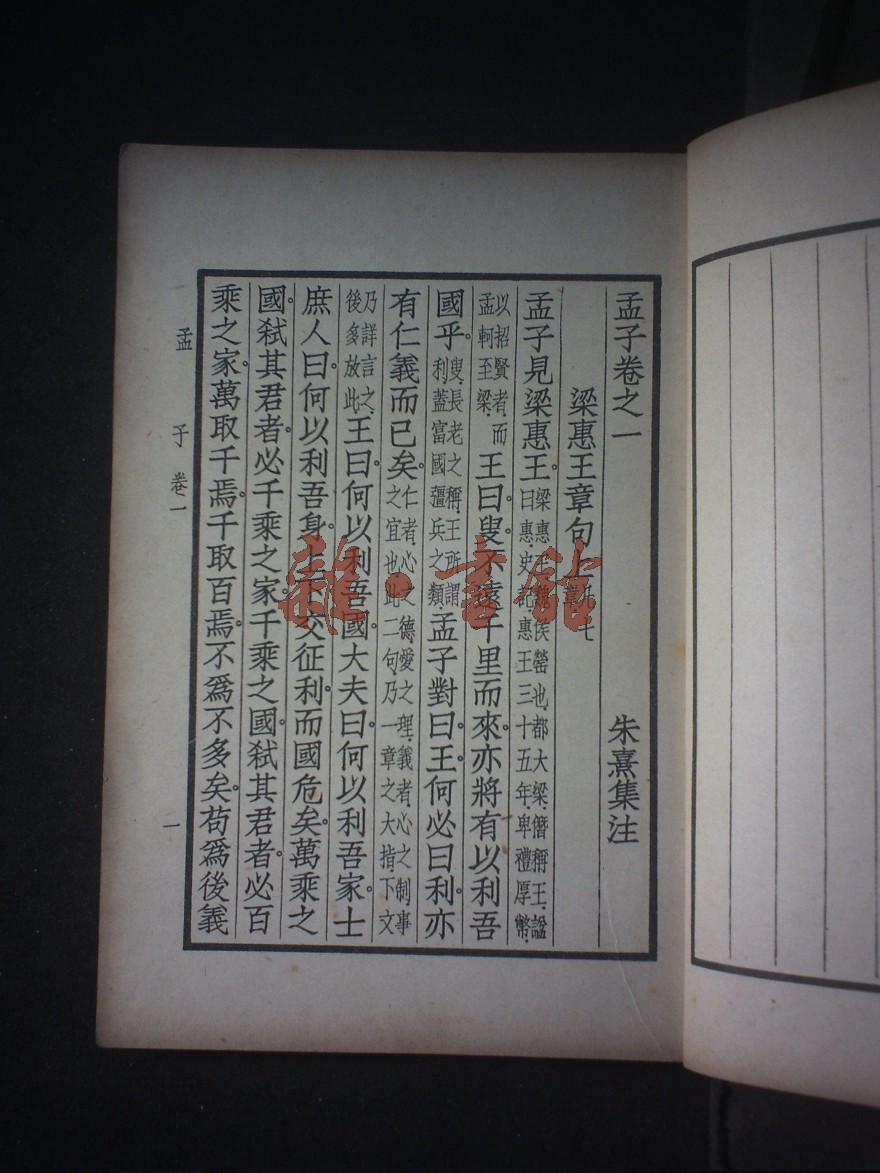 孟子卷之一 朱熹集注
梁惠王章句上凡七章
孟子見梁惠王。梁惠王魏侯罃也.都大梁.僭稱王.諡曰惠.史記惠王三十五年.卑禮厚幣.
以招賢者.而孟軻至梁.王曰。叟不遠千里而來。亦將有以利吾
國乎。叟.長老之稱.王所謂利.蓋富國彊兵之類.孟子對曰。王何必曰利。亦
有仁義而已矣。仁者.心之德.愛之理.義者.心之制.事之宜也.此二句.乃一章之大指.下文
乃詳言之.後多放此.王曰。何以利吾國。大夫曰。何以利吾家。士
庶人曰。何以利吾身。上下交征利。而國危矣。萬乘之
國。弒其君者。必千乘之家。千乘之國。弒其君者。必百
乘之家。萬取千焉。千取百焉。不為不多矣。苟為後義
孟子卷一
一
雜·書館